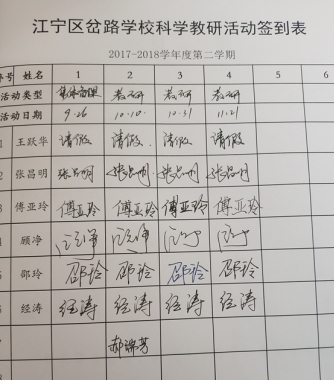 江宁区岔路学校科学教研活动签到表
2017-2018学年度第二学期
序号 姓名 1 2 3 4 5 6
活动类型 集体备课 教研 教研 教研
活动日期 9.26 10.10. 10.31 11.21
1 王跃华 请假 请假. 请假 请假
2 张昌明 张昌明 张昌明 张昌明 张昌明
3 傅亚玲 傅亚玲 傅亚玲 傅亚玲 傅亚玲
4 顾净
5 邵玲 邵玲 邵玲 邵玲 邵玲
6 经涛 经涛 经涛 经涛 经涛
7 郝瑞芳